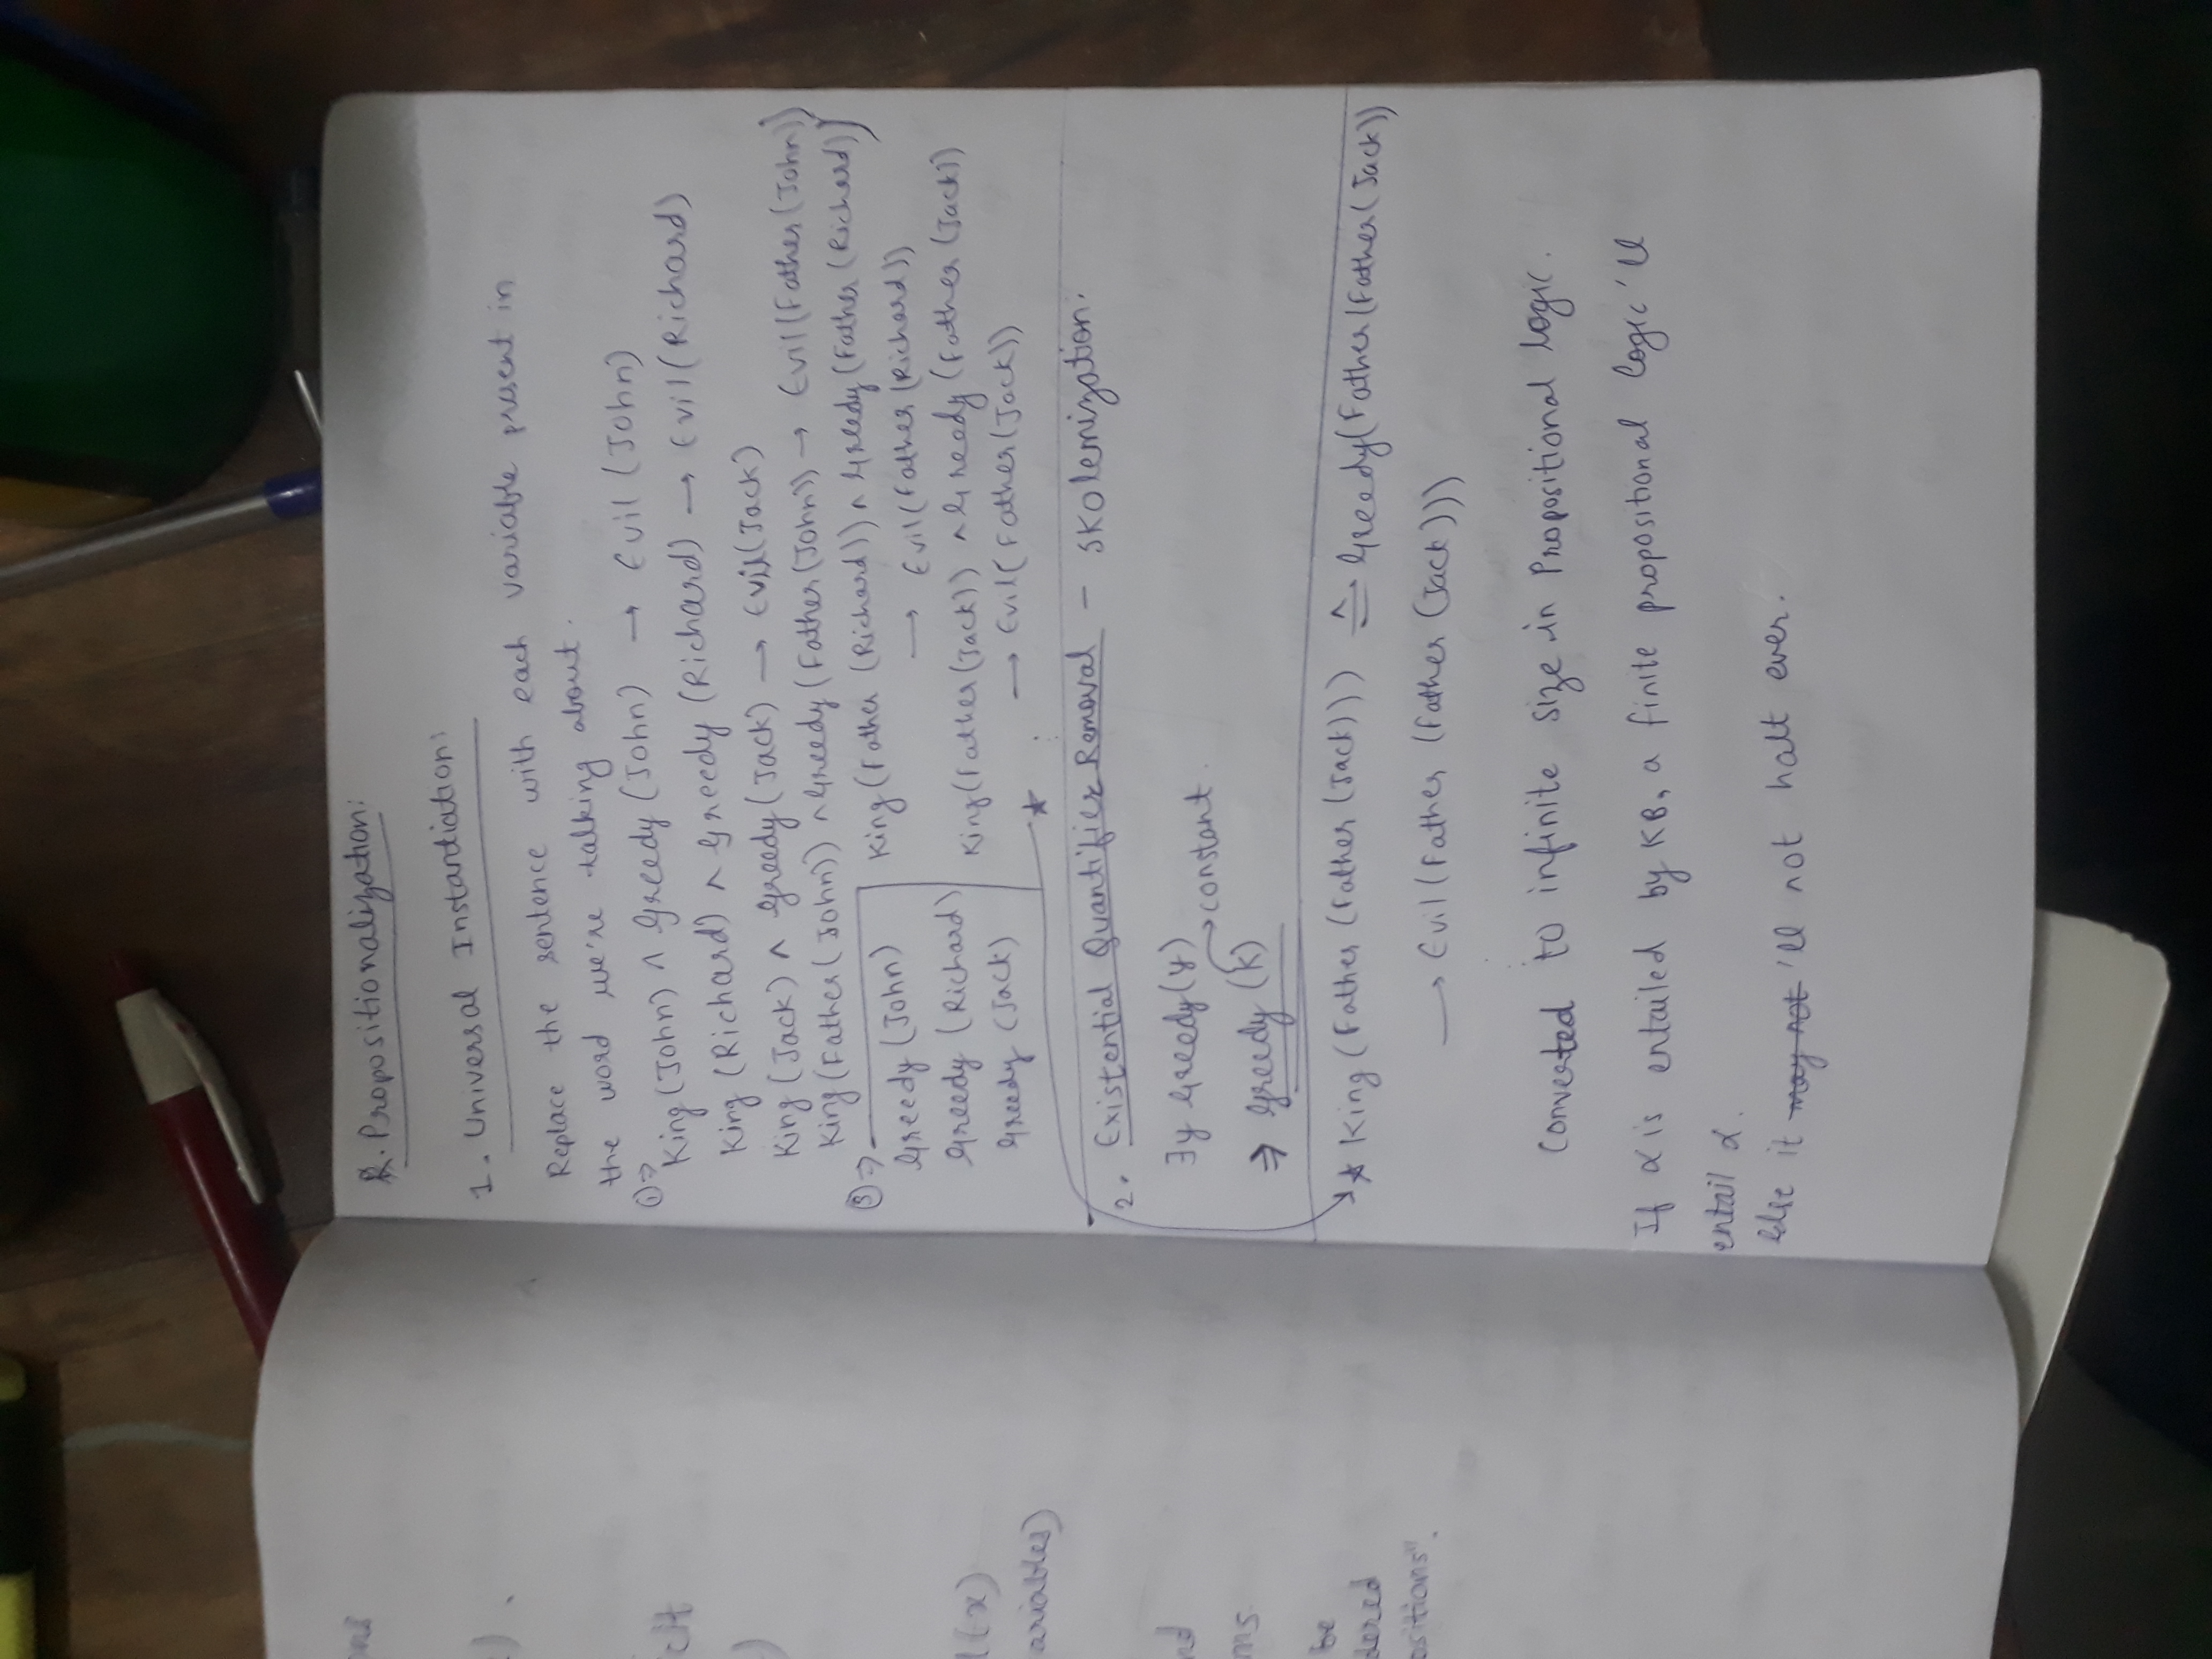 ons
).
icit
)
l(x)
ariables)
nd
ms.
be
dered
ositions".
Propositionalization:
1. Universal Instantiation:
Replace the sentence with each variable present in
the word we're talking about.
① ⇒ King (John) ∧ Greedy (John) → Evil (John)
King (Richard) ∧ Greedy (Richard) → Evil (Richard)
King (Jack) ∧ Greedy (Jack) → Evil (Jack)
King (Father (John)) ∧ Greedy (Father (John)) → Evil (Father (John))
③ ⇒ King (Father (Richard)) ∧ Greedy (Father (Richard))
Greedy (John) → Evil (Father (Richard))
Greedy (Richard) King (Father (Jack)) ∧ Greedy (Father (Jack))
Greedy (Jack) ★ → Evil (Father (Jack))
2. Existential Quantifier Removal - Skolemization:
∃y Greedy (y)
→ constant.
⇒ Greedy (k)
★ King (Father (Father (Jack))) ∧ Greedy (Father (Father (Jack))
→ Evil (Father (Father (Jack)))
Converted to infinite size in Propositional logic.
If α is entailed by KB, a finite propositional logic 'll
entail α.
else it may not 'll not halt ever.